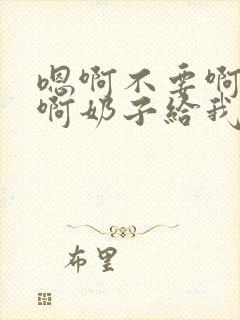 嗯啊不要啊
啊奶子给我
布里